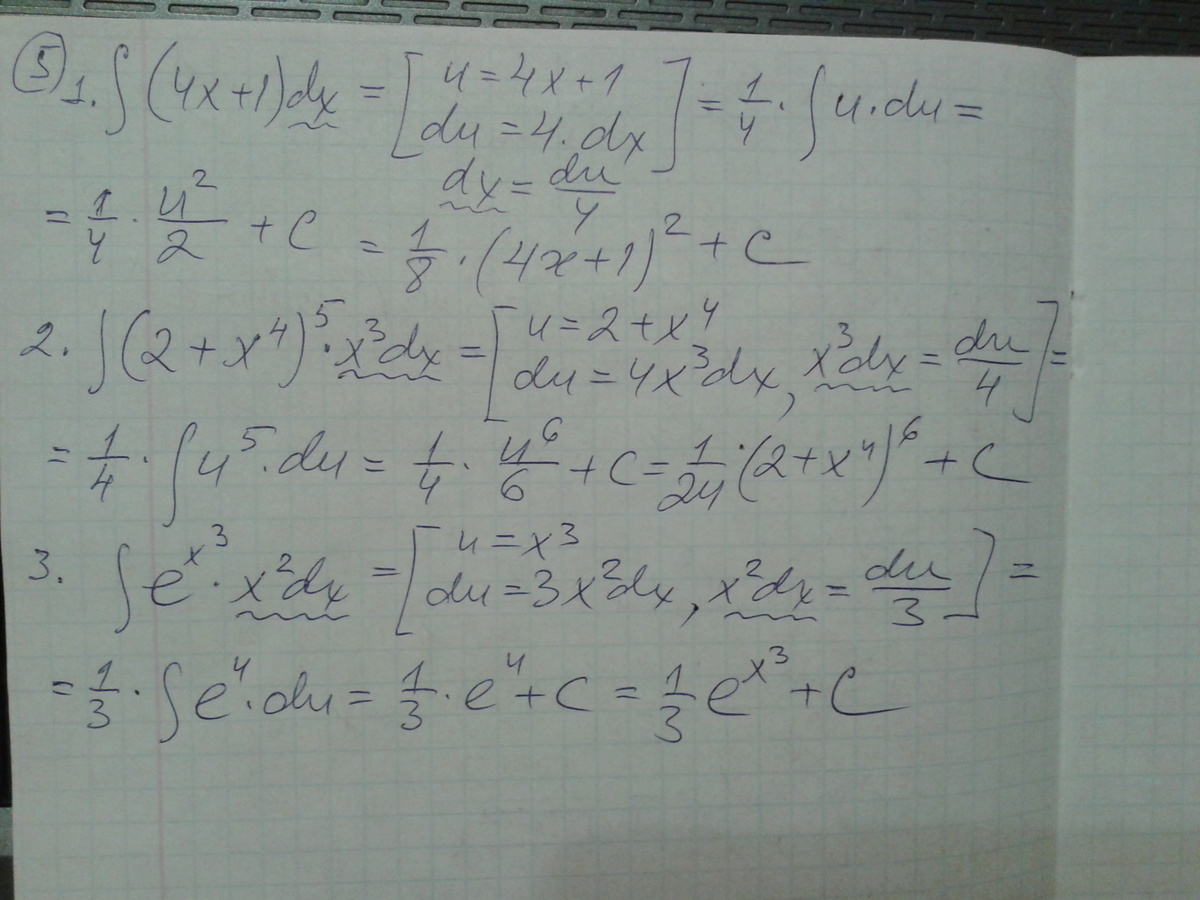 ⑤ 1. ∫(4x+1)dx = [u=4x+1
du=4·dx] = 1/4·∫u·du =
dx = du/4
= 1/4·u²/2 + C = 1/8·(4x+1)² + C
2. ∫(2+x⁴)⁵·x³dx = [u=2+x⁴
du=4x³dx, x³dx = du/4] =
= 1/4·∫u⁵·du = 1/4·u⁶/6 + C = 1/24·(2+x⁴)⁶ + C
3. ∫e^x³·x²dx = [u=x³
du=3x²dx, x²dx = du/3] =
= 1/3·∫e^u·du = 1/3·e^u + C = 1/3 e^x³ + C